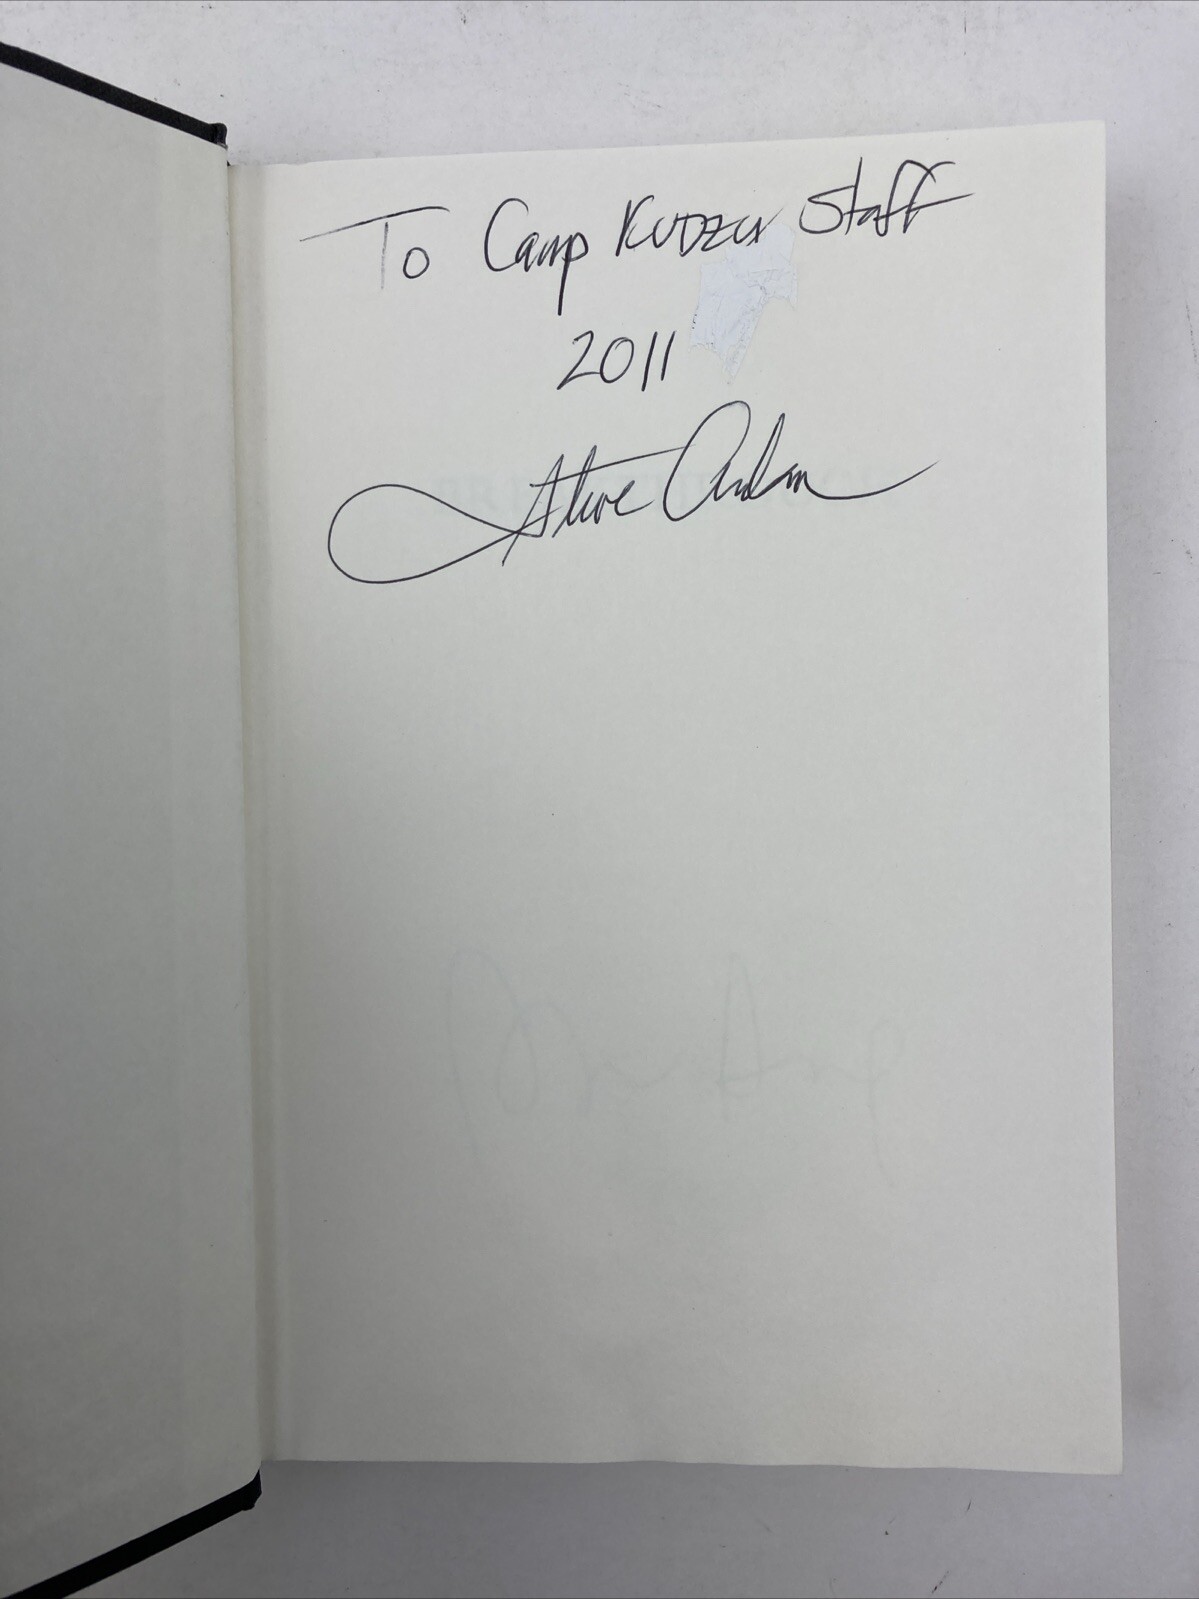 To Camp KUDZU Staff
2011
Steve